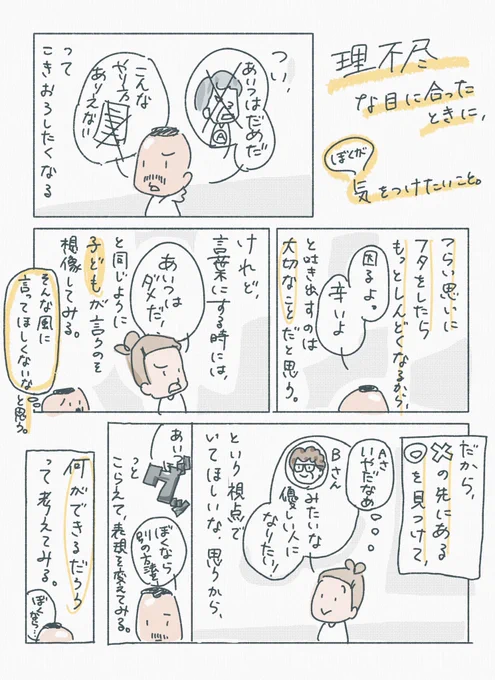 理不尽
な目に合った
ときに、
ぼくが
気をつけたいこと。
つい、
あいつはだめだ
A
こんな
やり方
ありえない
って
こきおろしたくなる
つらい思いに
フタをしたら
もっとしんどくなるから、
困るよ。
辛いよ
と吐き出すのは
大切なことだと思う。
けれど、
言葉にする時には、
あいつは
ダメだ、
と同じように
子どもが言うのを
想像してみる。
そんな風に
言ってほしくないな
と思う。
だから、
×の先にある
○を見つけて、
Aさ
いやだなぁ
Bさん
みたいな
優しい人に
なりたい!
という視点で
いてほしいな、思うから、
あいつ
っと
こらえて、表現を変えてみる。
ぼくなら
別の方法を
何ができるだろう
って考えてみる。
ぼくなら…